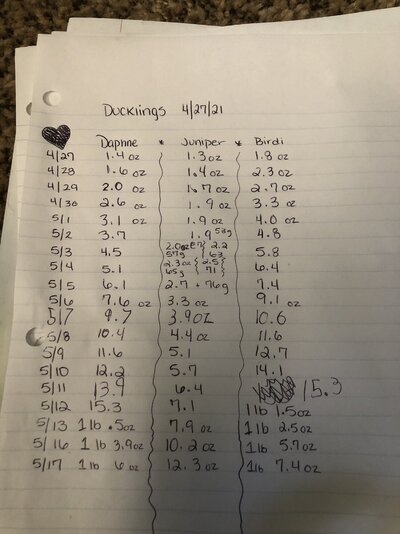 Ducklings 4/27/21
Daphne * Juniper * Birdi
4/27 1.4 oz 1.3 oz 1.8 oz
4/28 1.6 oz 1.4 oz 2.3 oz
4/29 2.0 oz 1.7 oz 2.7 oz
4/30 2.6 oz 1.9 oz 3.3 oz
5/1 3.1 oz 1.9 oz 4.0 oz
5/2 3.7 1.9 53g 4.8
5/3 4.5 2.0oz 57g 2.2 63 5.8
5/4 5.1 2.3oz 65g 2.5 71 6.4
5/5 6.1 2.7 76g 7.4
5/6 7.6 oz 3.3 oz 9.1 oz
5/7 9.7 3.9oz 10.6
5/8 10.4 4.4 oz 11.6
5/9 11.6 5.1 12.7
5/10 12.2 5.7 14.1
5/11 13.9 6.4 15.3
5/12 15.3 7.1 1 lb 1.5oz
5/13 1 lb .5oz 7.9 oz 1 lb 2.5oz
5/16 1 lb 3.9oz 10.2 oz 1 lb 5.7oz
5/17 1 lb 6 oz 12.3 oz 1 lb 7.4oz